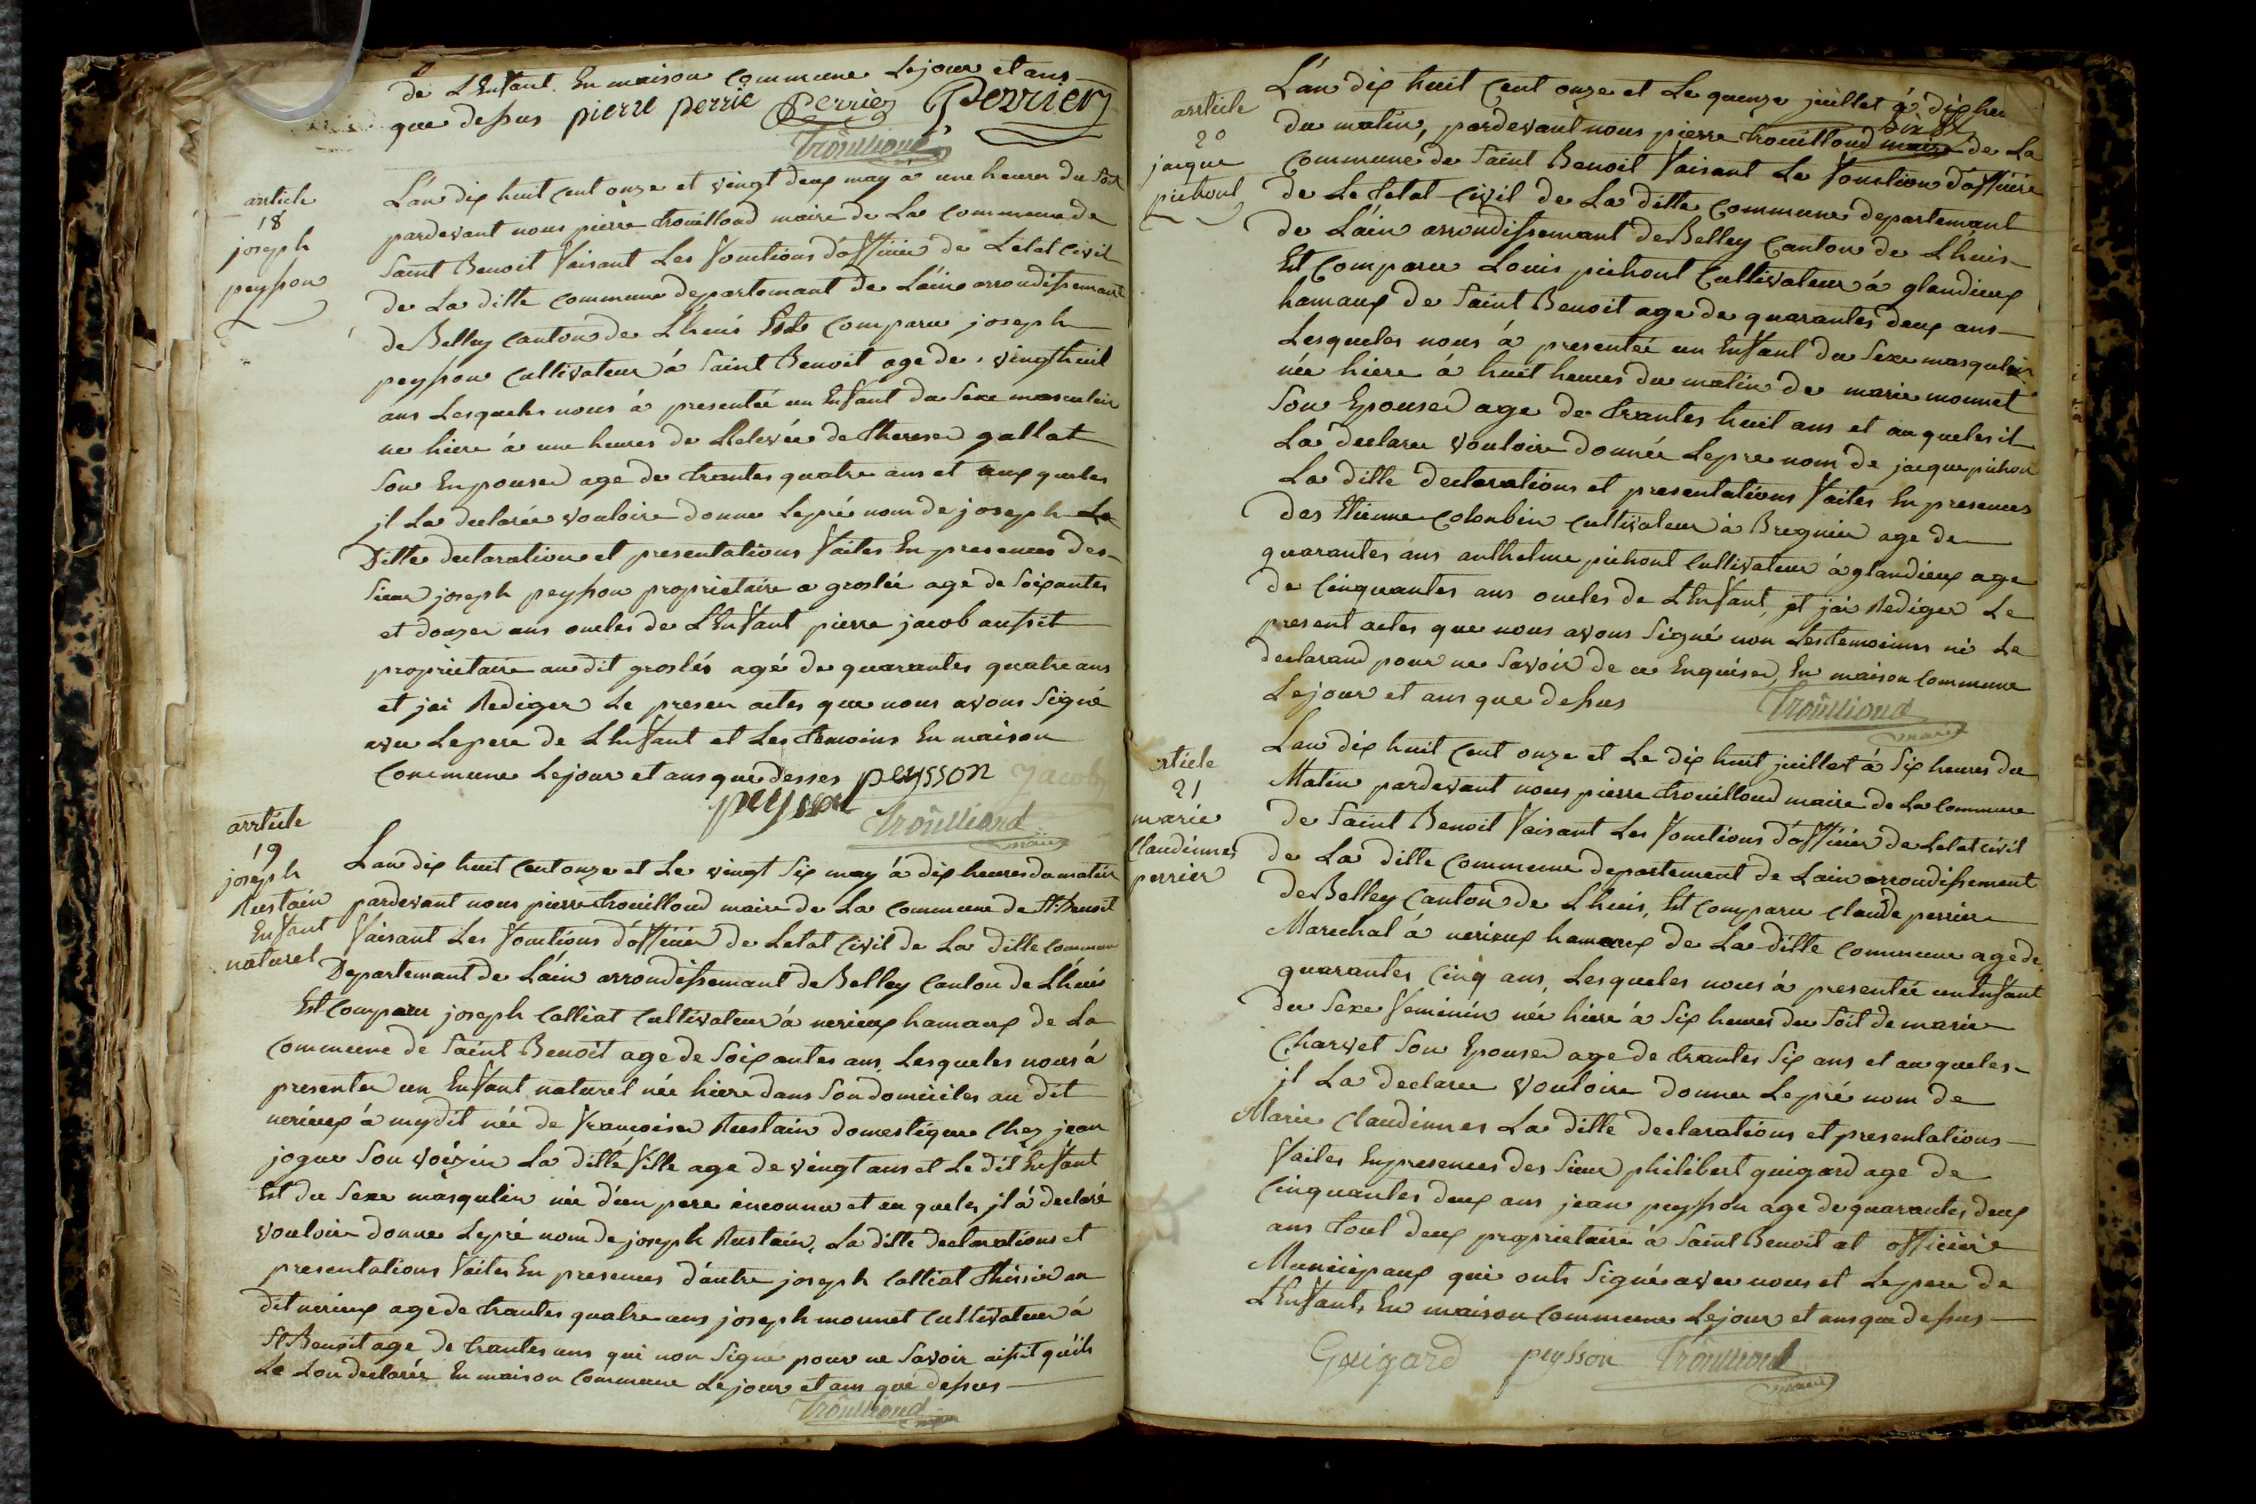 de L'Enfant. En maison Commune Lejour et ans
que dessus pierre perrie Perrier Perrier
Trouilloud
article
18
joseph
peysson
L'an dix huit Cent onze et vingt deux may à une heures du Soir
pardevant nous pierre trouilloud maire de La Commune de
Saint Benoit faisant Les fonctions d'officier de Letat Civil
de La ditte Commune departemant de L'ain arrondissemant
de Belley Canton de Lhuis Est Comparu joseph
peysson Cultivateur à Saint Benoit age de vingthuit
ans Lesqueles nous à presentée un Enfant du Sexe masculin
ne hiere à une heures de Relevée de therese gallat
Son Enpouse age de trantes quatre ans et auxqueles
jl La declarée vouloire donne Lepré nom de joseph La
Ditte declaration et presentations faites En presences des
Sieur joseph peysson proprietaire a groslée age de Soixantes
et douzes ans oncles de L'Enfant pierre jacob aussit
proprietaire au dit groslés agé de quarantes quatre ans
et jai Rediger Le presen actes que nous avons Signé
avec Lepere de L'hnfant et Les temoins En maison
Commune Lejour et ans que desses peysson Jacob
peysson
Trouilloud
maire
arrticle
19
joseph
Rustain
Enfant
naturel
Lan dix huit Cent onze et Le vingt Six may à dix heures du matin
pardevant nous pierre trouilloud maire de La Commune de St Benoit
faisant Les fonctions d'officier de Letat Civil de La ditte Commune
Departemant de L'ain arrondissemant de Belley Canton de Lhuis
Est Comparu joseph Calliat Cultivateur à nerieux hamaux de La
Commune de Saint Benoit age de Soixantes ans Lesqueles nous à
presenter un Enfant naturel née hiere dans Son domiciles au dit
nerieux à mydit née de francoise Rustain domestique Chez jean
jogue Son voizin La ditte fille age de vingt ans et Le dit Enfant
Est du Sexe masqulin née d'un pere inconnu et au queles jl à declaré
vouloir donne Lepré nom de joseph Rustain, La ditte declarations et
presentations faites En presences d'autre joseph Calliat thissier au
dit nerieux age de trantes quatre ans joseph monnet Cultivateur à
St Benoit age de trantes ans qui non Signe pour ne Savoir aissit quils
Le Lon declarée En maison Commune Lejour et ans que dessus
Trouilloud
arrticle
20
jacque
pichout
L'an dix huit Cent onze et Le quinze juillet à dix heu
du matin, pardevant nous pierre trouilloud maire de La
Commune de Saint Benoit faisant Le fonction d'officier
de Le tetat Civil de La ditte Commune departemant
de L'ain arrondissemant de Belley Canton de Lhuis
Est Comparu Louis pichout Cultivateur à glandieux
hamaux de Saint Benoit age de quarantes deux ans
Lesqueles nous à presentée un Enfant du Sexe masqulin
née hiere à huit heures du matin de marie monnet
Son Epouse age de trantes huit ans et auqueles il
La declaree vouloire donnée Lepre nom de jacque pichou
La ditte declarations et presentations faites En presences
des Etienne Colonbin Cultivateur à Bregnier age de
quarantes ans anthelme pichout Cultivateur à glandieux age
de Cinquantes ans oncles de L'Enfant, et jai Rediger Le
present actes que nous avons Signé non Les temoinns ni Le
declarand pour ne Savoir de ce Enquise, En maison Commune
Lejour et ans que dessus
Trouilloud
maire
article
21
marie
Claudinnes
perrier
Lan dix huit Cent onze et Le dix huit juillet à Six heures du
Matin pardevant nous pierre trouilloud maire de La Commune
de Saint Benoit faisant Les fonctions d'officier de Letat Civil
de La ditte Commune departement de Lain arrondissement
de Belley Canton de Lhuis, Est Comparu Claude perrier
Marechal à nerieux hamaux de La ditte Commune age de
quarantes Cinq ans, Lesqueles nous à presentée un Enfant
du Sexe feminin née hiere à Six heures du Soit de marie
Charvet Son Epouse age de trantes Six ans et auqueles
jl La declaree vouloire donner Lepré nom de
Marie Claudinnes La ditte declarations et presentations
faites Enpresences des Sieur philibert guigard age de
Cinquantes deux ans jean peysson age de quarantes deux
ans tout deux proprietaire à Saint Benoit et officier
Municipaux qui onts Signé avec nous et Lepere de
L'Enfants En maison Commune Lejour et ans que dessus
Guigard peysson Trouilloud
maire